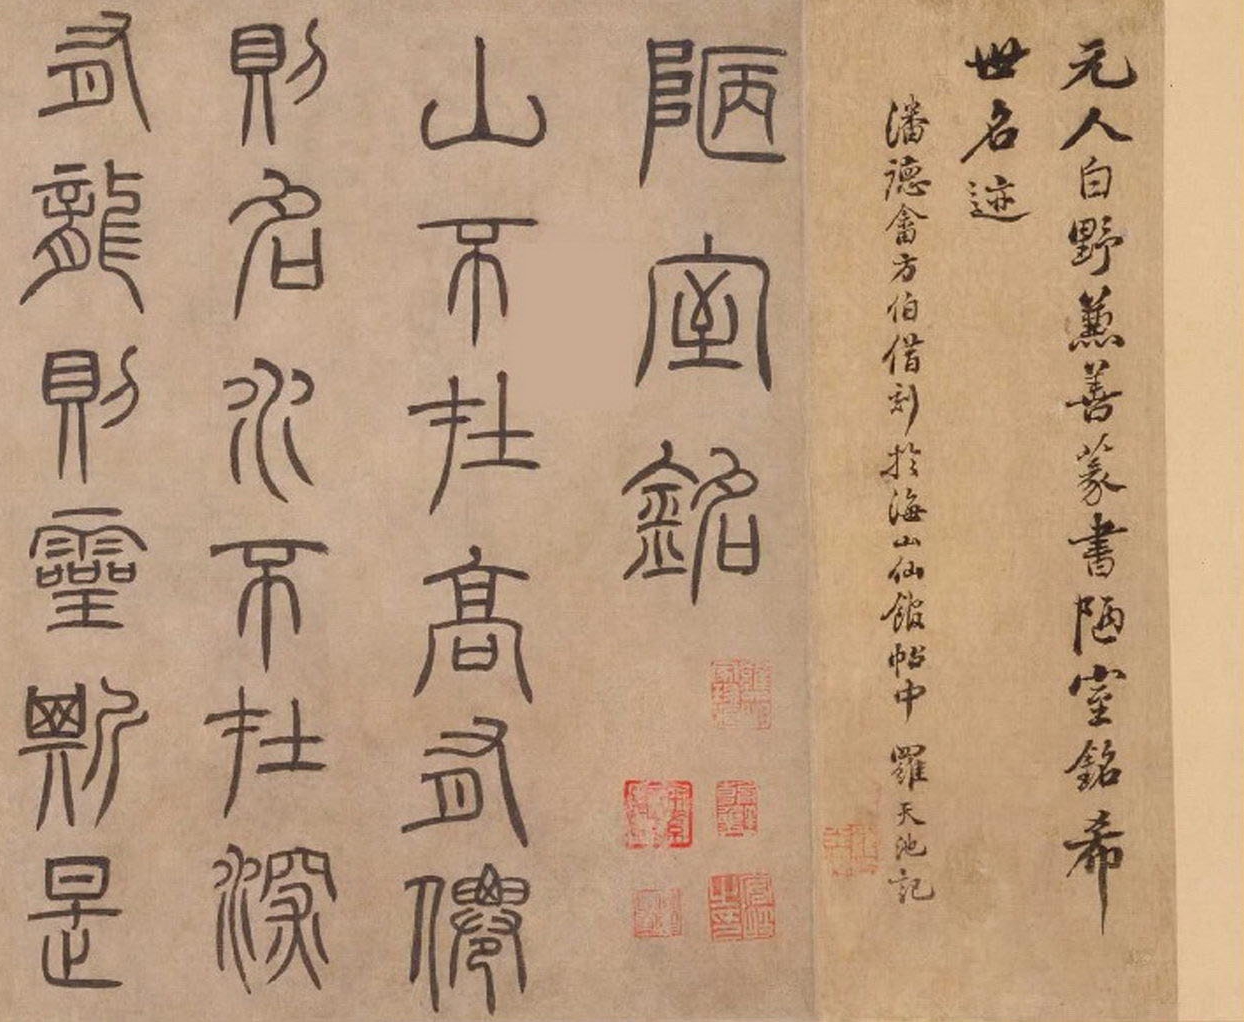 元人白野蕉善篆書陋室銘希
世名迹
潘德畬方伯借刻於海山仙館帖中 羅天池記
陋室銘
山不在高有僊
則名水不在深
有龍則靈斯是